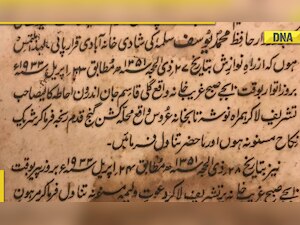 DNA
دار حافظ محمد یوسف سلمہ کی شادی خانہ آبادی قرار پائی
ہوں کہ از راہ نوازش بتاریخ ۲۷ ذی الحجہ ۱۳۵۱ھ مطابق ۲۳ اپریل ۱۹۳۳ء
بروز اتوار بوقت ۱۰ بجے صبح غریب خانہ واقع گلی قاسم جان اندرون احاطہ کالے صاحب
تشریف لاکر ہمراہ نوشتا بخانہ عروس واقع محلہ کشن گنج قدم رنجہ فرما کر شریک
نکاح مسنونہ ہوں اور ماحضر تناول فرمائیں۔
نیز بتاریخ ۲۸ ذی الحجہ ۱۳۵۱ھ مطابق ۲۴ اپریل ۱۹۳۳ء بروز پیر بوقت
بجے صبح غریب خانہ پر تشریف لاکر دعوت ولیمہ مسنونہ تناول فرما کر مرہون